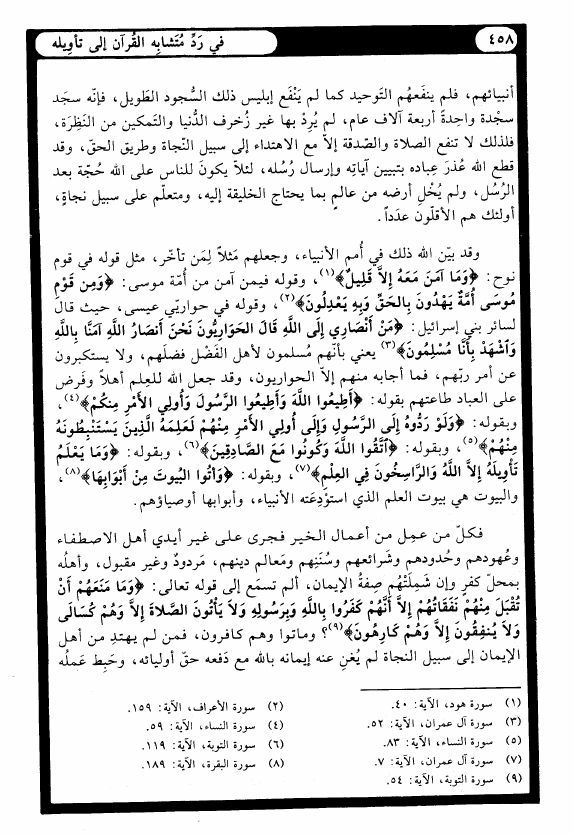 ٤٥٨
في رَدِّ مُتَشابِه القُرآن إلى تأوِيله
أنبيائهم، فلم ينفَعهُم التَوحيد كما لم يَنْفَع إبليس ذلك السُجود الطَويل، فإنّه سجَد
سجْدة واحِدةً أربعة آلاف عام، لم يُرِدْ بها غير زُخرف الدُّنيا والتَمكين من النَظِرَة،
فلذلك لا تنفع الصلاة والصّدقة إلاّ مع الاهتداء إلى سبيل النّجاة وطَريق الحقّ، وقد
قطَع الله عُذرَ عِباده بتبيين آياتِه وإرسال رُسُله، لئلاّ يكونَ للناس على الله حُجّة بعد
الرُسُل، ولم يُخْلِ أرضه من عالمٍ بما يحتاج الخليقة إليه، ومتعلّم على سبيل نجاةٍ،
أولئك هم الأقلّون عدَداً.
وقد بيّن الله ذلك في أُمم الأنبياء، وجعلهم مَثلاً لِمَن تأخّر، مثل قوله في قوم
نوح: ﴿وَمَا آمَنَ مَعَهُ إِلاَّ قَلِيلٌ﴾(١)، وقوله فيمن آمن من أُمّة موسى: ﴿وَمِن قَوْمِ
مُوسَى أُمَّةٌ يَهْدُونَ بِالحَقِّ وَبِهِ يَعْدِلُونَ﴾(٢)، وقوله في حواريّي عيسى، حيث قال
لسائر بني إسرائيل: ﴿مَنْ أَنْصَارِي إِلَى اللَّهِ قَالَ الحَوَارِيُّونَ نَحْنُ أَنصَارُ اللَّهِ آمَنَّا بِاللَّهِ
وَاَشْهَدْ بِأَنَّا مُسْلِمُونَ﴾(٣) يعني بأنّهم مُسلمون لأهل الفَضْل فضلَهم، ولا يستكبرون
عن أمر ربّهم، فما أجابه منهم إلاّ الحواريون، وقد جعل الله للعِلم أهلاً وفَرض
على العباد طاعتهم بقوله: ﴿أَطِيعُوا اللَّهَ وَأَطِيعُوا الرَّسُولَ وَأُولِي الأَمْرِ مِنكُمْ﴾(٤)،
وبقوله: ﴿وَلَوْ رَدُّوهُ إِلَى الرَّسُولِ وَإِلَى أُولِي الأَمْرِ مِنْهُمْ لَعَلِمَهُ الَّذِينَ يَسْتَنْبِطُونَهُ
مِنْهُمْ﴾(٥)، وبقوله: ﴿اَتَّقُوا اللَّهَ وَكُونُوا مَعَ الصَّادِقِينَ﴾(٦)، وبقوله: ﴿وَمَا يَعْلَمُ
تَأْوِيلَهُ إِلاَّ اللَّهُ وَالرَّاسِخُونَ فِي العِلْمِ﴾(٧)، وبقوله: ﴿وَأتُوا البُيوتَ مِنْ أَبْوَابِهَا﴾(٨)،
والبيوت هي بيوت العلم الذي استوْدِعَته الأنبياء، وأبوابها أوصياؤهم.
فكلّ من عمِل من أعمال الخير فجرى على غير أيدي أهل الاصطفاء
وعُهودهم وحُدودهم وشرائعهم وسُنَنِهم ومَعالم دينهم، مَردودٌ وغير مقبول، وأهلُه
بمحلّ كفرٍ وإن شَمِلَتْهُم صِفةُ الإيمان، ألم تسمَع إلى قوله تعالى: ﴿وَمَا مَنَعَهُمْ أَنْ
تُقْبَلَ مِنْهُمْ نَفَقَاتُهُمْ إِلاَّ أَنَّهُمْ كَفَرُوا بِاللَّهِ وَبِرَسُولِهِ وَلاَ يَأْتُونَ الصَّلاَةَ إِلاَّ وَهُمْ كُسَالَى
وَلاَ يُنفِقُونَ إِلاَّ وَهُمْ كَارِهُونَ﴾(٩)؟ وماتوا وهم كافرون، فمن لم يهتدِ من أهل
الإيمان إلى سبيل النجاة لم يُغْنِ عنه إيمانه بالله مع دَفعه حقّ أوليائه، وحَبِط عمَلُه
(١) سورة هود، الآية: ٤٠.
(٢) سورة الأعراف، الآية: ١٥٩.
(٣) سورة آل عمران، الآية: ٥٢.
(٤) سورة النساء، الآية: ٥٩.
(٥) سورة النساء، الآية: ٨٣.
(٦) سورة التوبة، الآية: ١١٩.
(٧) سورة آل عمران، الآية: ٧.
(٨) سورة البقرة، الآية: ١٨٩.
(٩) سورة التوبة، الآية: ٥٤.